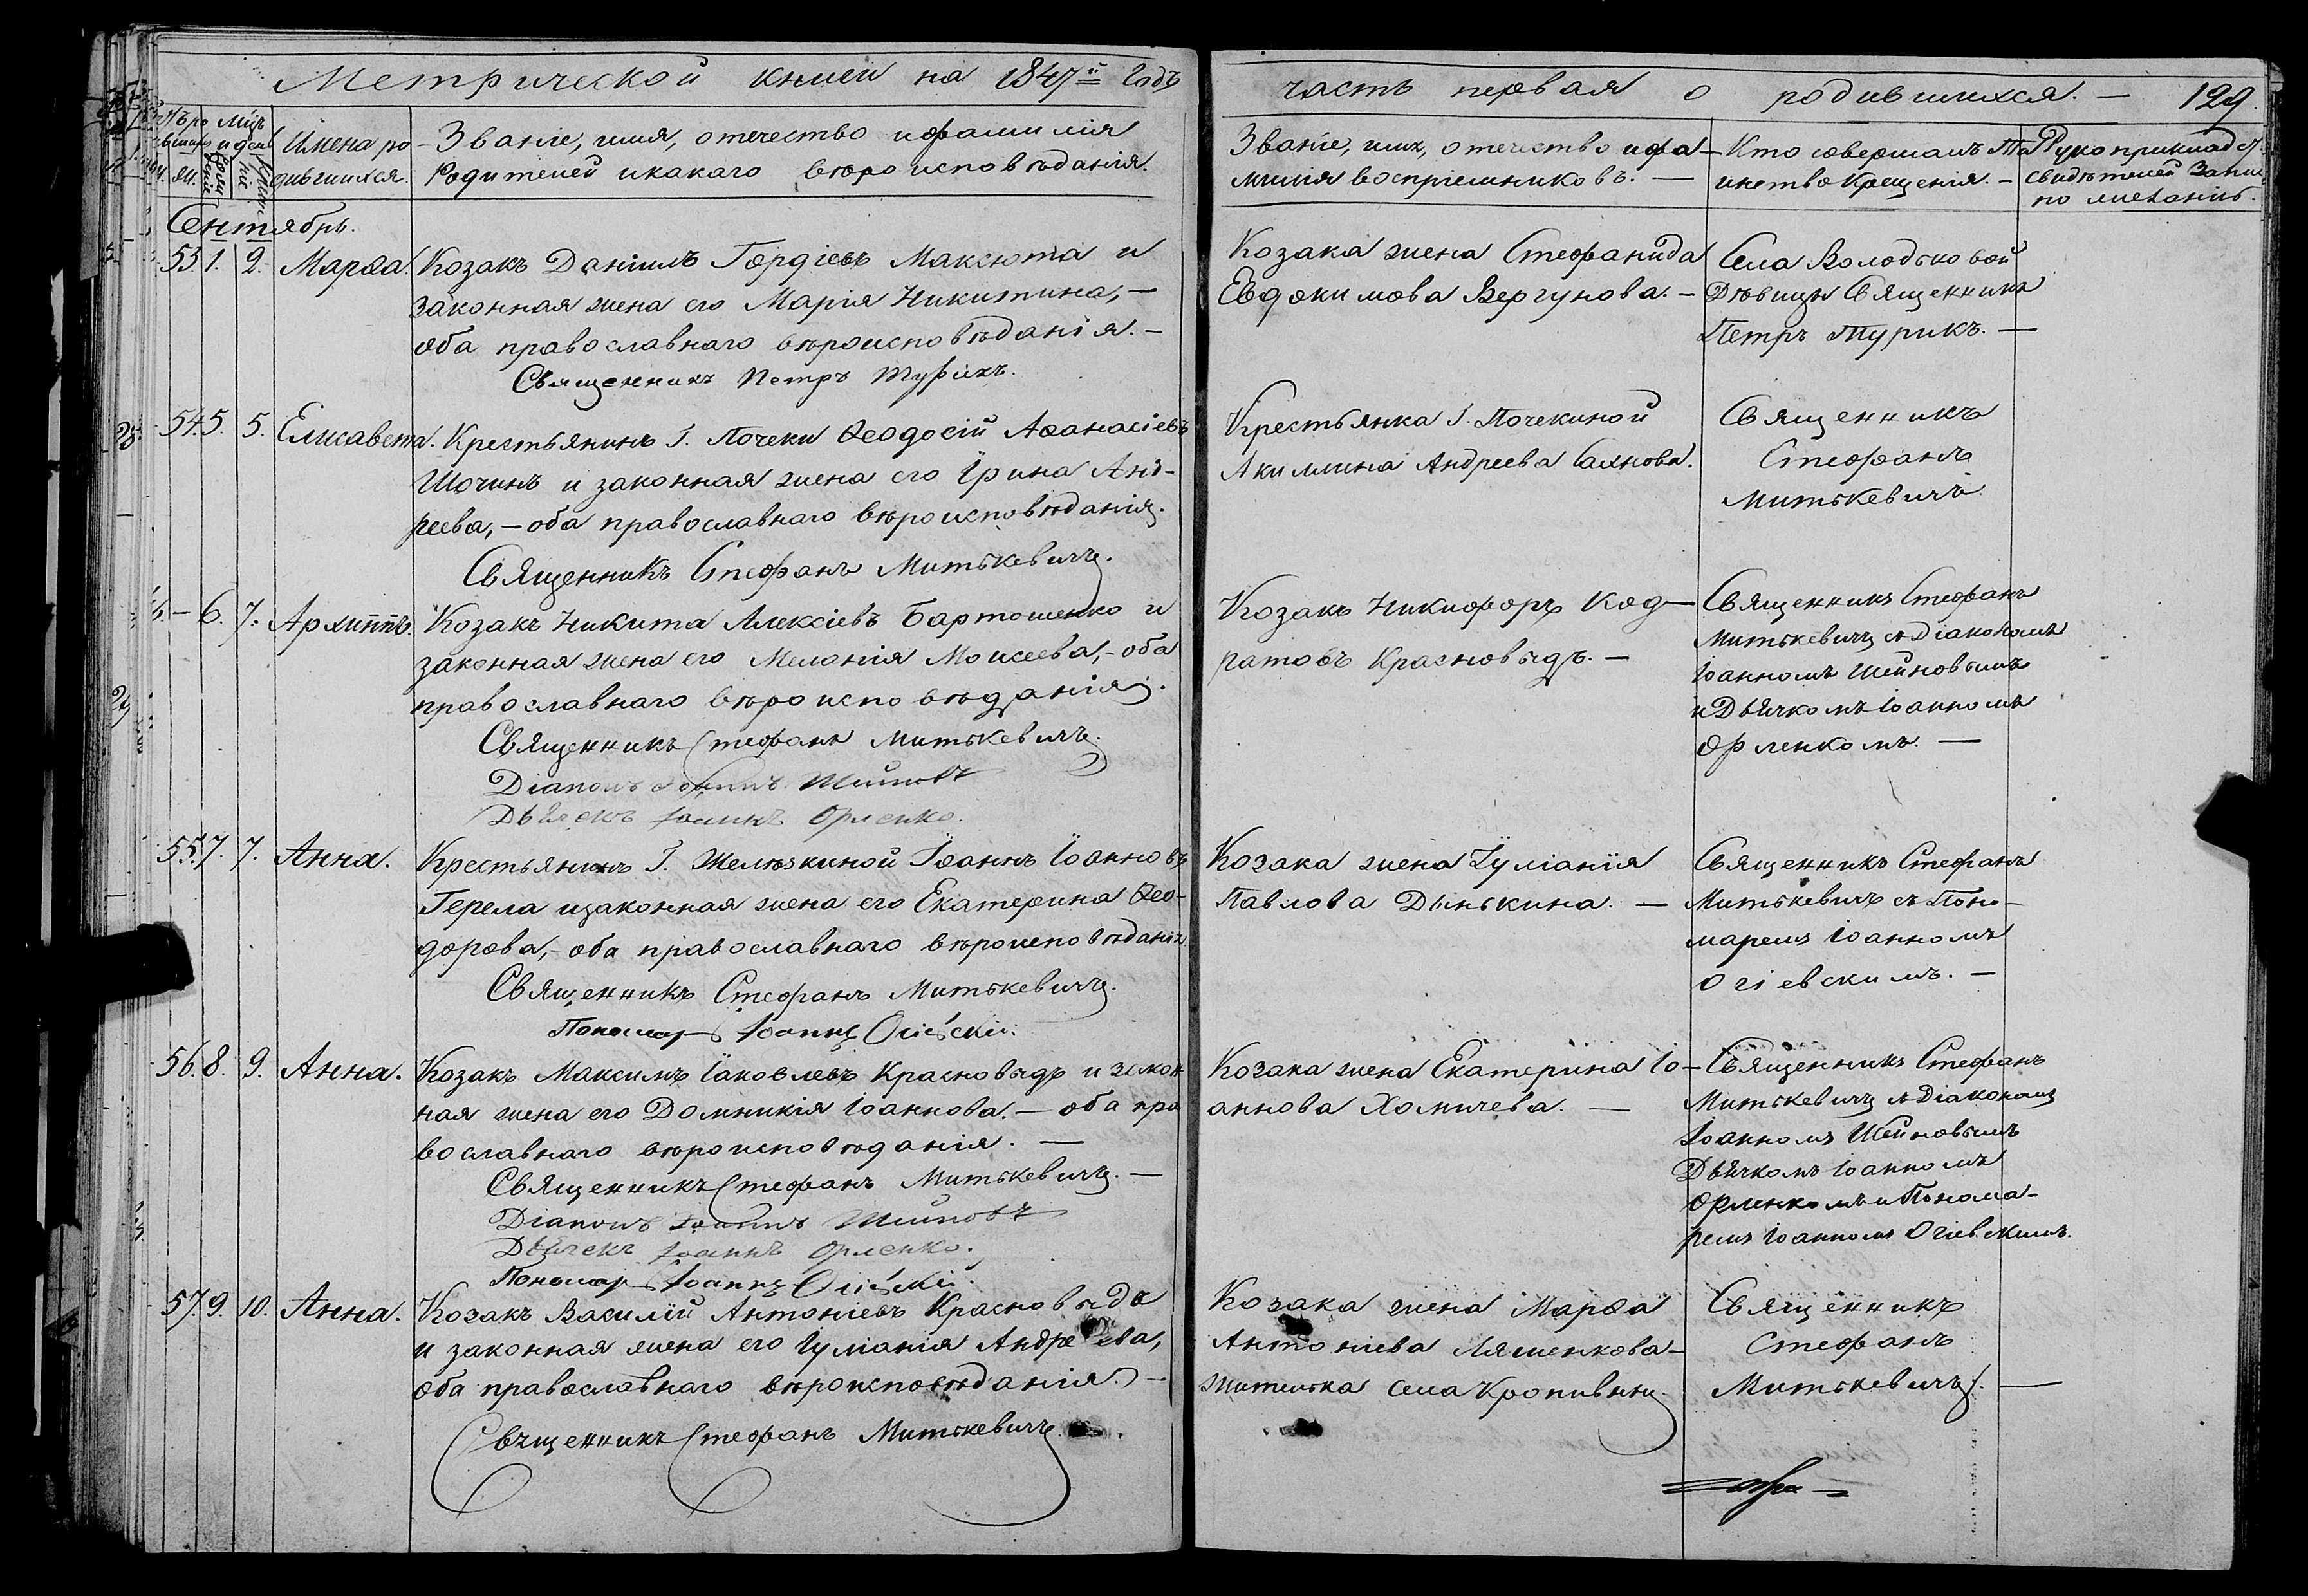 Метрической книги на 1847й Годъ
Имена ро-
дившихся.
Званіе, имя, отечество и фамилія
Родителей и какаго вѣроисповѣданія.
Сентябрь.
53. 1. 2. Марѳа. Козакъ Даніилъ Гордіевъ Максюта и
законная жена его Марія Никитина,-
оба православнаго вѣроисповѣданія.-
Священникъ Петръ Турикъ.
54. 5. 5. Елисавета. Крестьянинъ Г. Почеки Ѳеодосій Аѳанасіевъ
Шочинъ и законная жена его Ірина Анд-
реева,- оба православнаго вѣроисповѣданія.
Священникъ Стефанъ Митькевичъ.
- 6. 7. Архиппъ. Козакъ Никита Алексіевъ Бартошенко и
законная жена его Меланія Моисеева,- оба
православнаго вѣроисповѣданія.
Священникъ Стефанъ Митькевичъ.
Діаконъ Іоаннъ Шейновъ
Дьячекъ Іоаннъ Орленко.
55. 7. 7. Анна. Крестьянинъ Г. Желѣзкиной Іоаннъ Іоанновъ
Герела и законная жена его Екатерина Ѳео-
дорова,- оба православнаго вѣроисповѣданія
Священникъ Стефанъ Митькевичъ.
Пономарь Іоаннъ Огіевскій.
56. 8. 9. Анна. Козакъ Максимъ Іаковлевъ Красновыдъ и закон
ная жена его Домникія Іоаннова.- оба пра
вославнаго вѣроисповѣданія.-
Священникъ Стефанъ Митькевичъ.-
Діаконъ Іоаннъ Шейновъ
Дьячекъ Іоаннъ Орленко.
Пономарь Іоаннъ Огіевскій.
57. 9. 10. Анна. Козакъ Василій Антоніевъ Красновыдъ
и законная жена его Іуліанія Андреева,
оба православнаго вѣроисповѣданія.-
Священникъ Стефанъ Митькевичъ.
часть первая о родившихся.- 129.
Званіе, имя, отечество и фа-
милія воспріемниковъ.-
Кто совершалъ Та
инство Крещенія.-
Рукоприкладст.
свидѣтелей Запи
по желанію.
Козака жена Стефанида
Евдокимова Вергунова.-
Села Володьковой
Дѣвицы Священникъ
Петръ Турикъ.-
Крестьянка Г. Почекиной
Акилина Андреева Сахнова.
Священникъ
Стефанъ
Митькевичъ.
Козакъ Никифоръ Код-
ратовъ Красновыдъ.-
Священникъ Стефанъ
Митькевичъ съ Діакономъ
Іоанномъ Шейновымъ
и Дьячкомъ Іоанномъ
Орленкомъ.-
Козака жена Іуліанія
Павлова Динькина.-
Священникъ Стефанъ
Митькевичъ съ Поно-
маремъ Іоанномъ
Огіевскимъ.-
Козака жена Екатерина Іо-
аннова Хомичева.-
Священникъ Стефанъ
Митькевичъ съ Діакономъ
Іоанномъ Шейновымъ
Дьячкомъ Іоанномъ
Орленкомъ и Понома-
ремъ Іоанномъ Огіевскимъ.
Козака жена Марѳа
Антоніева Ляшенкова-
жителька села Кропивны.
Священникъ
Стефанъ
Митькевичъ.-